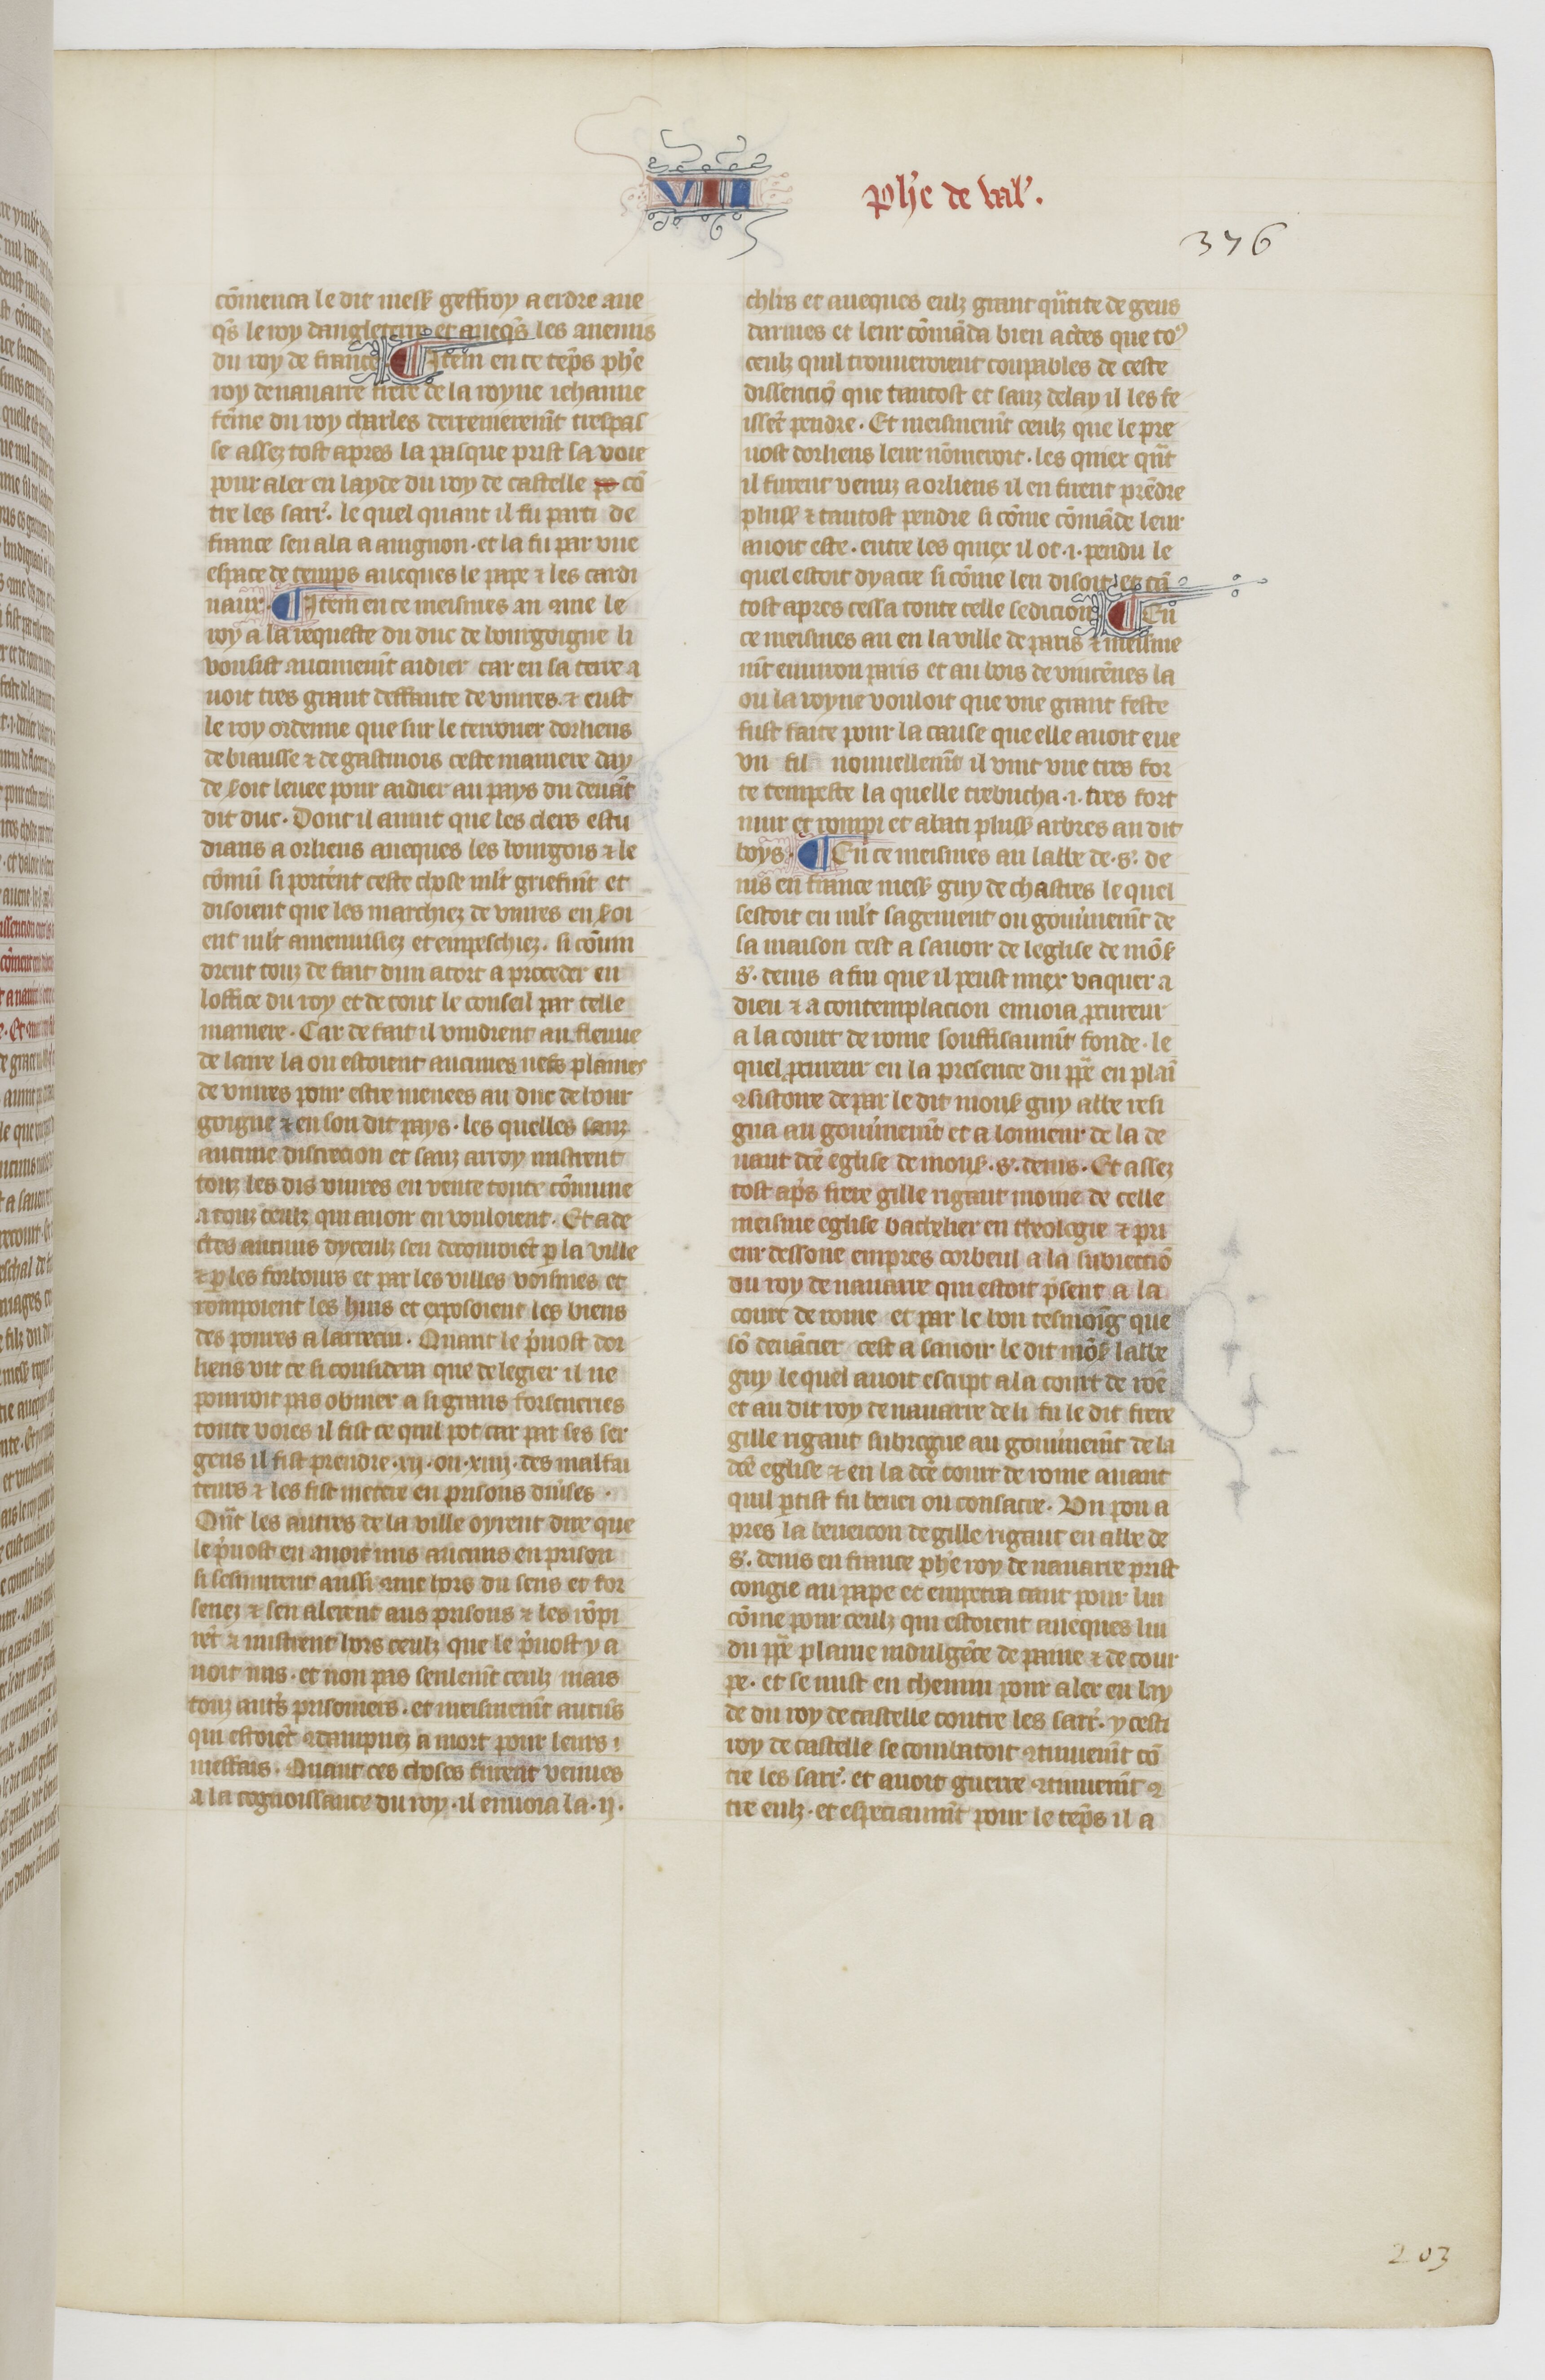 VII
phe de val'.
376
cōmenca le dit mess' geffroy a erdre aue
qs le roy dangleterre et aueqs les anemis
du roy de france ¶ Item en ce tēps phe
roy de nauarre frere de la royne iehanne
fēme du roy charles derrenieremt trespas
se assez tost apres la pasque prist sa voie
pour aler en layde du roy de castelle cō
tre les sarr'. le quel quant il fu parti de
france sen ala a auignon. et la fu par vne
espace de temps auecques le pape ⁊ les cardi
naux. ¶ Item en ce meismes an ꝯme le
roy a la requeste du duc de bourgoigne li
vousist aucunemt aidier car en sa terre a
uoit tres grant deffaute de viures. ⁊ eust
le roy ordenne que sur le terrouer dorliens
de biausse ⁊ de gastinois ceste maniere day
de soit leuee pour aidier au pays du deuāt
dit duc. Dont il auint que les clers estu
dians a orliens auecques les bourgois ⁊ le
cōmū si porterent ceste chose mlt griefmt et
disoient que les marchiez de viures en soi
ent mlt amenuisiez et empeschiez. si cōuin
drent touz de fait dun acort a proceder en
loffice du roy et de tout le conseil par telle
maniere. Car de fait il vindrent au fleuue
de loire la ou estoient aucunes nefs plaines
de viures pour estre menees au duc de bour
goigne ⁊ en son dit pays. les quelles sanz
aucune discrecion et sanz arroy mistrent
touz les dis viures en vente toute cōmune
a touz ceulz qui auoir en vouloient. Et a de
certes aucuns dyceulz sen decouroiēt p la ville
⁊ p les forbours et par les villes voisines et
rompoient les huis et exposoient les biens
des poures a larrecin. Quant le puost dor
liens vit ce si considera que de legier il ne
pourroit pas obuier a si grans forseneries
toute voies il fist ce quil pot car par ses ser
gens il fist prendre .xij. ou .xiiij. des malfai
teurs ⁊ les fist mettre en prisons diuises.
Qūt les autres de la ville oyrent dire que
le puost en auoit mis aucuns en prison
si sesmurent aussi ꝯme hors du sens et for
senez ⁊ sen alerent aus prisons ⁊ les rōpi
rēt ⁊ mistrent hors ceulz que le puost y a
uoit mis. et non pas seulemt ceulz mais
touz autrs prisonniers. et meismemt aucūs
qui estoiēt ꝯdampnez a mort pour leurs
meffais. Quant ces choses furent venues
a la cognoissance du roy. il enuoia la .ij.
chlrs et auecques eulz grant qūtite de gens
darmes et leur cōmāda bien actes que to9
ceulz quil trouueroient coupables de ceste
dissenciō que tantost et sanz delay il les fe
issēt pendre. Et meismemt ceulz que le pre
uost dorliens leur nōmeroit. les quiex qūt
il furent venuz a orliens il en firent prēdre
pluss' ⁊ tantost pendre si cōme cōmāde leur
auoit este. entre les quiex il ot .i. pendu le
quel estoit dyacre si cōme len disoit. et tā
tost apres cessa toute celle sedicion ¶ En
ce meismes an en la ville de paris ⁊ meisme
mt enuiron paris et au bois de vincēnes la
ou la royne vouloit que vne grant feste
fust faite pour la cause que elle auoit eue
vn fil nouuellemt il vint vne tres for
te tempeste la quelle trebucha .i. tres fort
mur et rompi et abati pluss' arbres au dit
boys. ¶ En ce meismes an labbe de .s'. de
nis en france mess' guy de chastres le quel
sestoit eu mlt sagement ou gouuinemt de
sa maison cest a sauoir de leglise de mōs'
s'. denis a fin que il peust miex vaquer a
dieu ⁊ a contemplacion enuoia pcureur
a la court de rome souffisaumt fonde. le
quel pcureur en la presence du ppe en plai
ꝯsistoire de par le dit mons' guy abbe resi
gna au gouuinemt et a lonneur de la de
uant dce eglise de mons'. s'. denis. Et assez
tost aps frere gille rigaut moine de celle
meisme eglise bachelier en theologie ⁊ pri
eur dessone empres corbeul a la subiectiō
du roy de nauarre qui estoit psent a la
court de rome et par le bon tesmoing que
sō deuācier cest a sauoir le dit mōs' labbe
guy le quel auoit escript a la court de rōe
et au dit roy de nauarre de li fu le dit frere
gille rigaut subrogue au gouuinemt de la
dce eglise ⁊ en la dce court de rome auant
quil ptist fu benei ou consacre. Vn pou a
pres la beneicon de gille rigaut en abbe de
s'. denis en france phe roy de nauarre prist
congie au pape et empetra tant pour lui
cōme pour ceulz qui estoient auecques lui
du ppe plaine indulgēce de paine ⁊ de coul
pe. et se mist en chemin pour aler en lay
de du roy de castelle contre les sarr'. y cesti
roy de castelle se combatoit ꝯtinuemt cō
tre les sarr'. et auoit guerre ꝯtinuemt ꝯ
tre eulz. et especiaumt pour le tēps il a
203